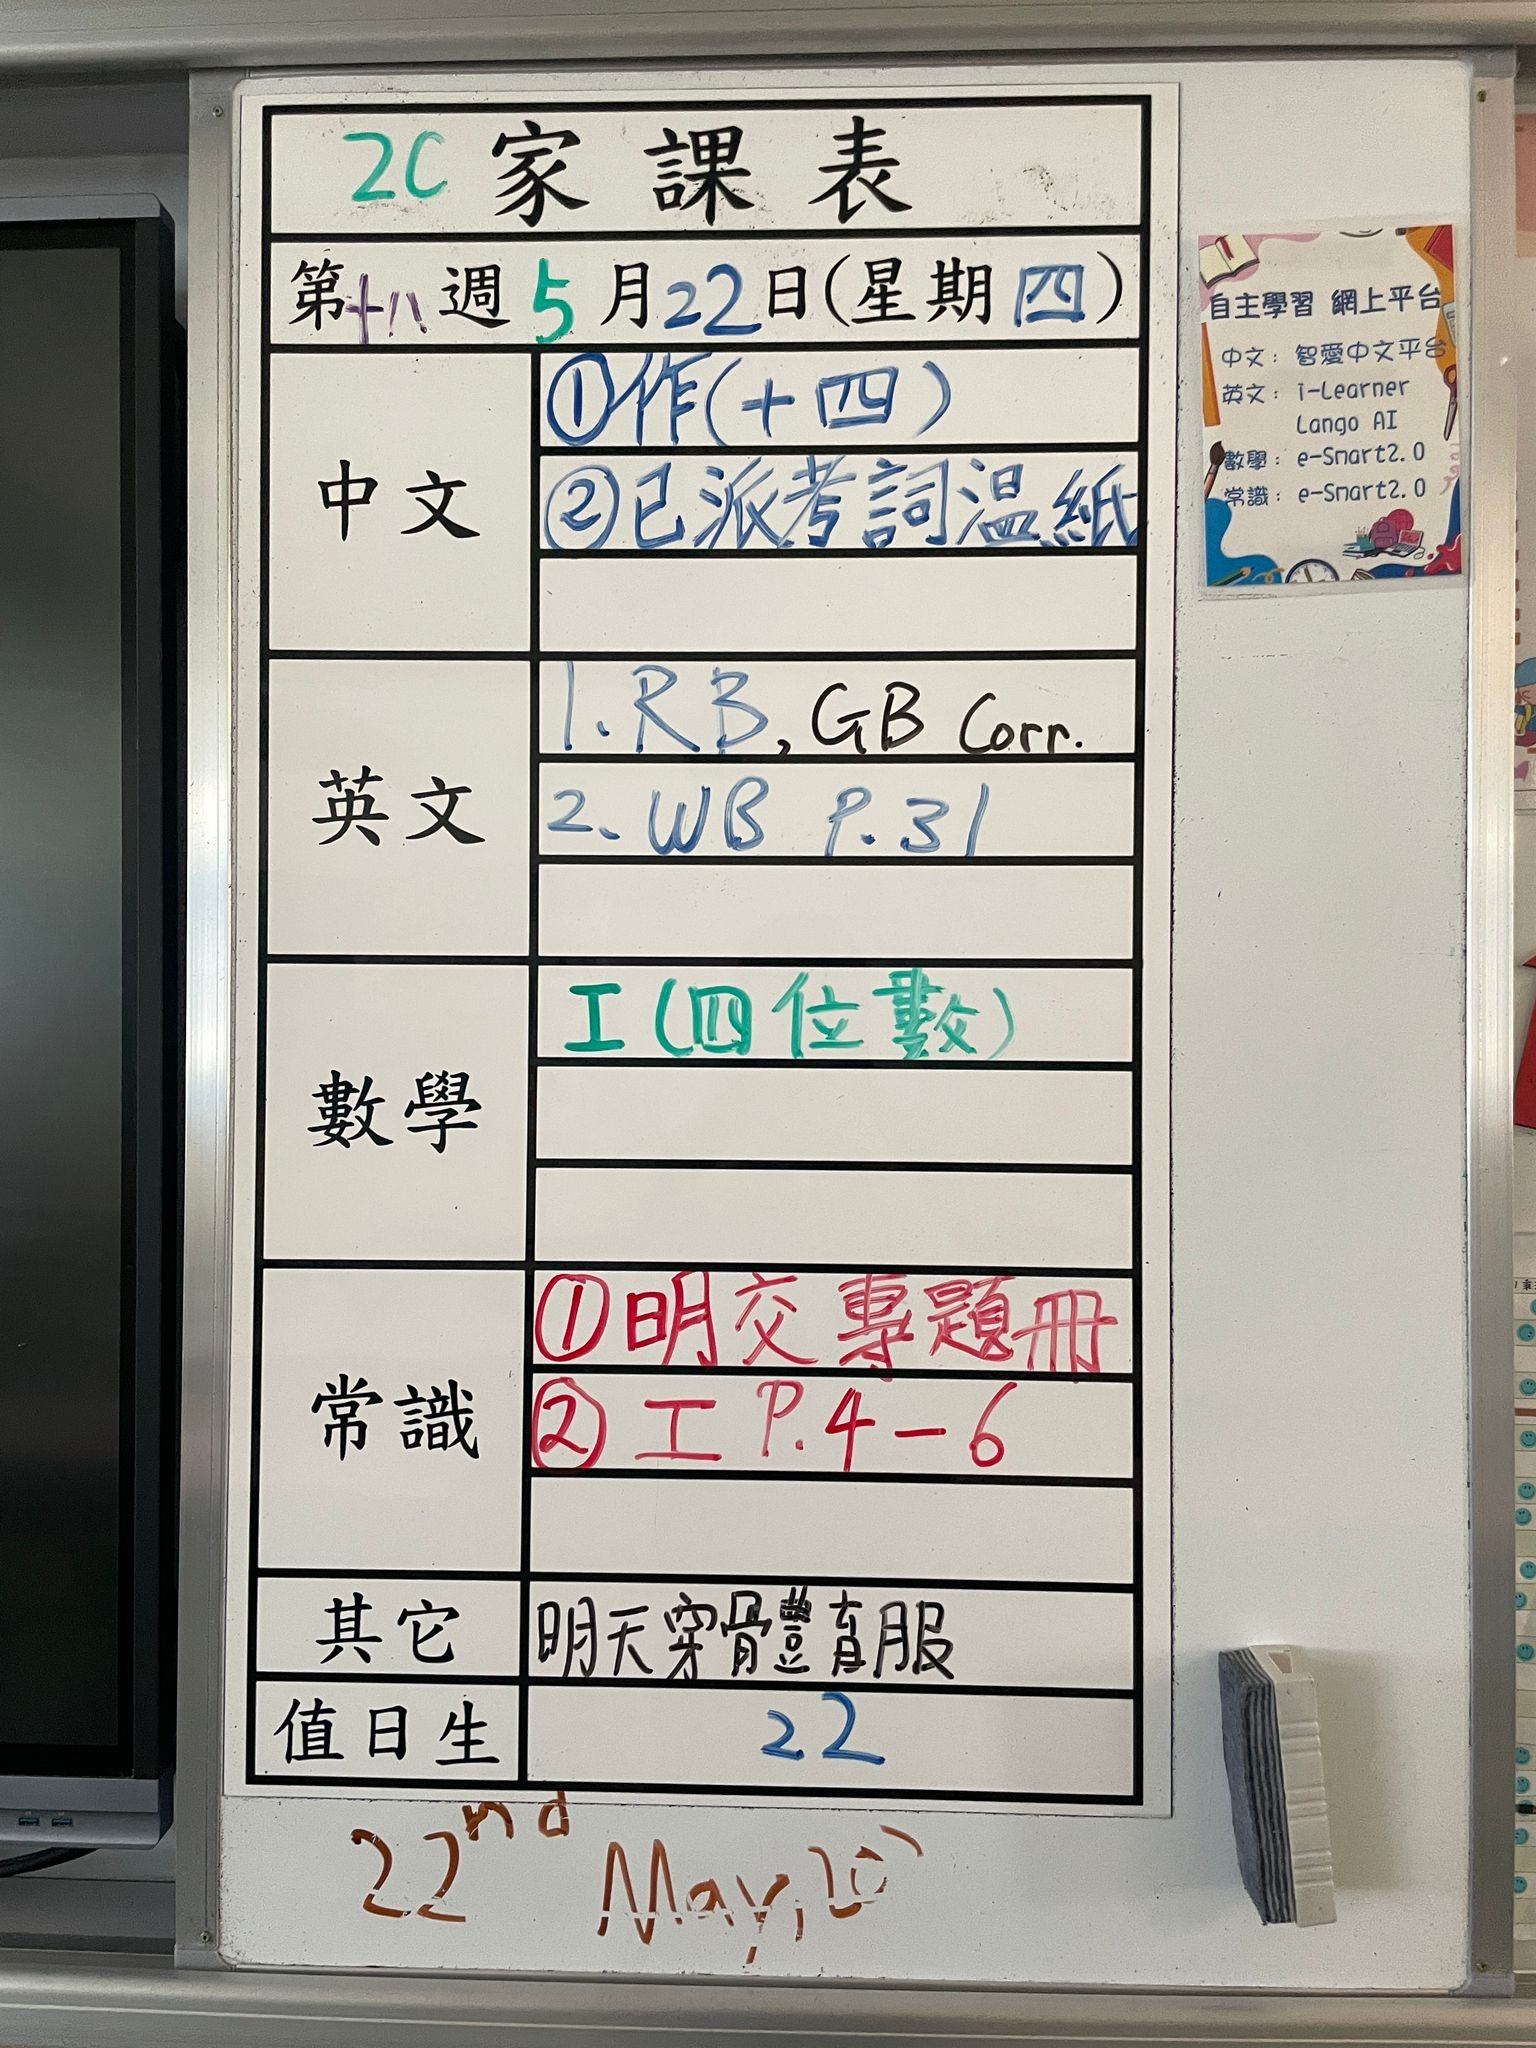 2C 家課表
第十八週 5月22日(星期四)
中文
①作(十四)
②已派考詞温紙
英文
1. RB, GB Corr.
2. WB P.31
數學
工(四位數)
常識
①明交專題冊
②工 P.4-6
其它
明天穿體育服
值日生
22
22nd May,
自主學習 網上平台
中文: 智愛中文平台
英文: i-Learner
Lango AI
數學: e-Smart2.0
常識: e-Smart2.0